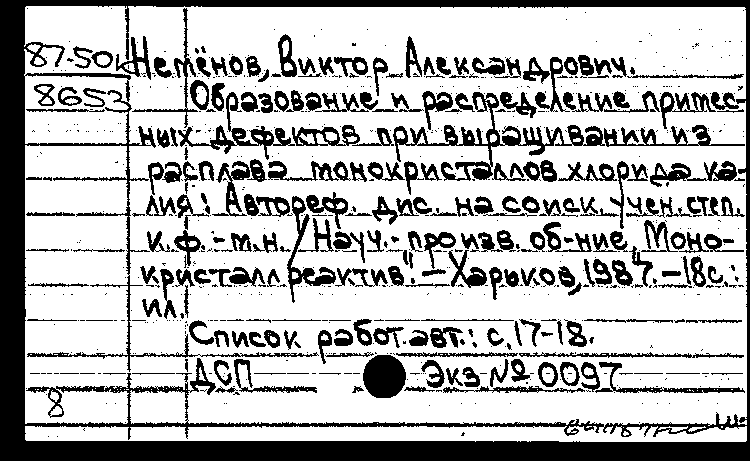 87-50к Немёнов, Виктор Александрович.
8653 Образование и распределение примес-
ных дефектов при выращивании из
расплава монокристаллов хлорида ка-
лия: Автореф. дис. на соиск. учен. степ.
к.ф.-м.н. / Науч.-произв. об-ние „Моно-
кристаллреактив“. — Харьков, 1987. — 18с.:
ил.
Список работ авт.: с. 17-18.
ДСП Экз № 0097
8